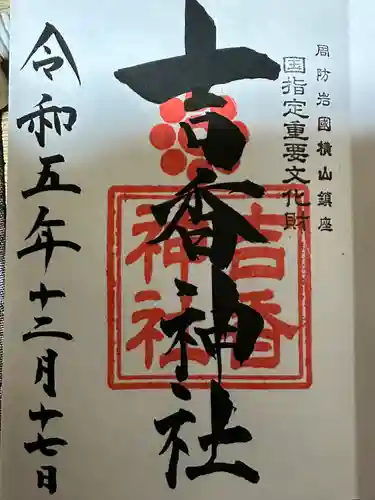 周防岩國横山鎮座
国指定重要文化財
吉香神社
吉香
神社
令和五年十二月十七日